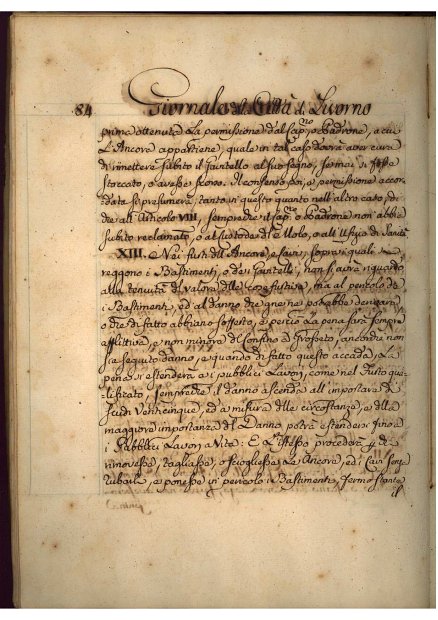 84 Giornale della Città di Livorno
prima ottenuta la permissione dal Cap.no, o Padrone, a cui
l'Ancora appartiene, quale in tal caso dovrà aver cura
di rimettere subito il Gavitello al suo segno, se mai si fosse
stoccato, o avesse perso. Il consenso poi, e permissione accor-
data si presumerà, tanto in questo quanto nell'altro caso, di
che all'Articolo VIII, sempre che il Cap.no o Padrone non abbia
subito reclamato, o al Custode del Molo, o all'Ufizio di Sanità
XIII. Nei furti dell'Ancore, e Cavi, sopra i quali si
reggono i Bastimenti, o dei Gavitelli, non si avrà riguardo
alla tenuità di valore delle Cose furtive, ma al pericolo de
i Bastimenti, ed al danno che gne ne potrebbe derivare,
o che di fatto abbiano sofferto, e perciò la pena sarà sempre
afflittiva, e non minore di Confino a Grosseto, ancorchè non
sia seguito danno, e quando di fatto questo accada, la
pena si estenderà a i pubblici Lavori, come nel Furto qua-
lificato, sempre che il danno ascenda all'importare di
Scudi Venticinque, ed a misura delle circostanze, e della
maggiore importanza del Danno potrà estendersi fino a
i Pubblici Lavori a Vita: E l'istesso procederà per chi
rimovesse, tagliasse, o sciogliesse le Ancore, ed i Cavi senza
rubarli, e ponesse in pericolo i Bastimenti, fermo stante
il